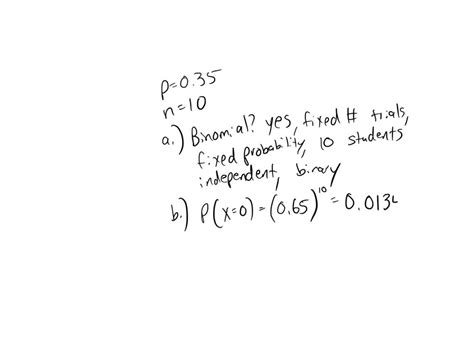 p=0.35
n=10
a.) Binomial? yes, fixed # trials,
fixed probability, 10 students
independent, binary
b.) P(x=0) = (0.65)^10 = 0.013